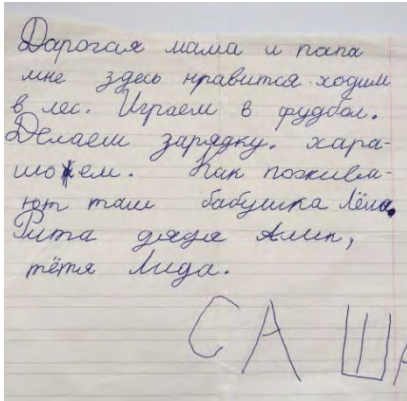 Дарогая мама и папа
мне здесь нравится ходим
в лес. Играем в фудбол.
Делаем зарядку. хара-
шо ем. Как пожива-
ют там бабушка Лёла.
Рита дядя Алик,
тётя Лида.
САША